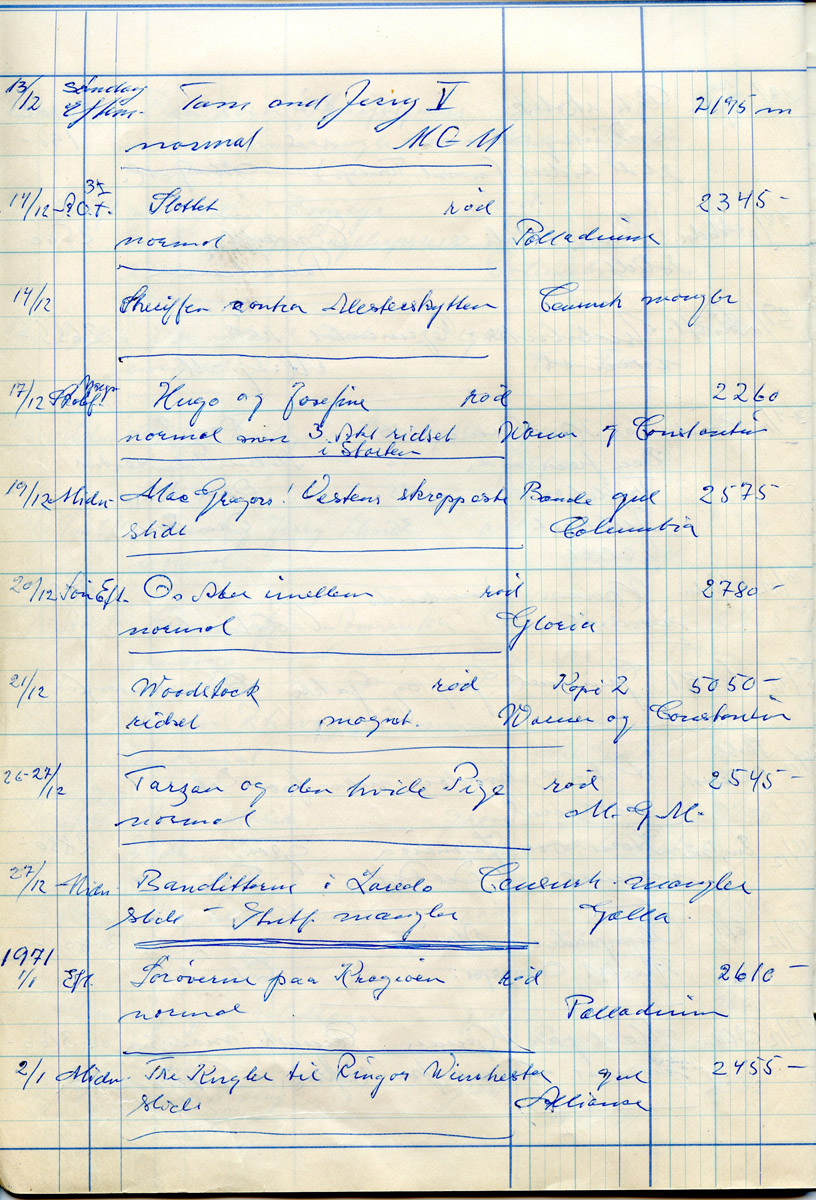 13/12 Søndag Eftm. Tom and Jerry V 2195 m
normal MGM
14/12 35 Slottet rød 2345-
normal Palladium
14/12 Sheriffen contra Mesterskytten Censurk mangler
17/12 Hugo og Josefine rød 2260
normal men 3. Akt ridset Warner og Constantin
i Starten
19/12 Midn. Mac Gregors! Vestens skrappeste Bande gul 2575-
slidt Columbia
20/12 Søn Eft. Os Aber imellem rød 2780-
normal Gloria
21/12 Woodstock rød Kopi 2 5050-
ridset magnet. Warner og Constantin
26-27/12 Tarzan og den hvide Pige rød 2545-
normal M.G.M.
27/12 Midn. Banditterne i Laredo Censurk. mangler
slidt - mangler Gefla
1971
1/1 Eft. Sørøverne paa Kragøen rød 2610-
normal Palladium
2/1 Midn. Tre Kugler til Ringos Winchester gul 2455-
slidt Alliance